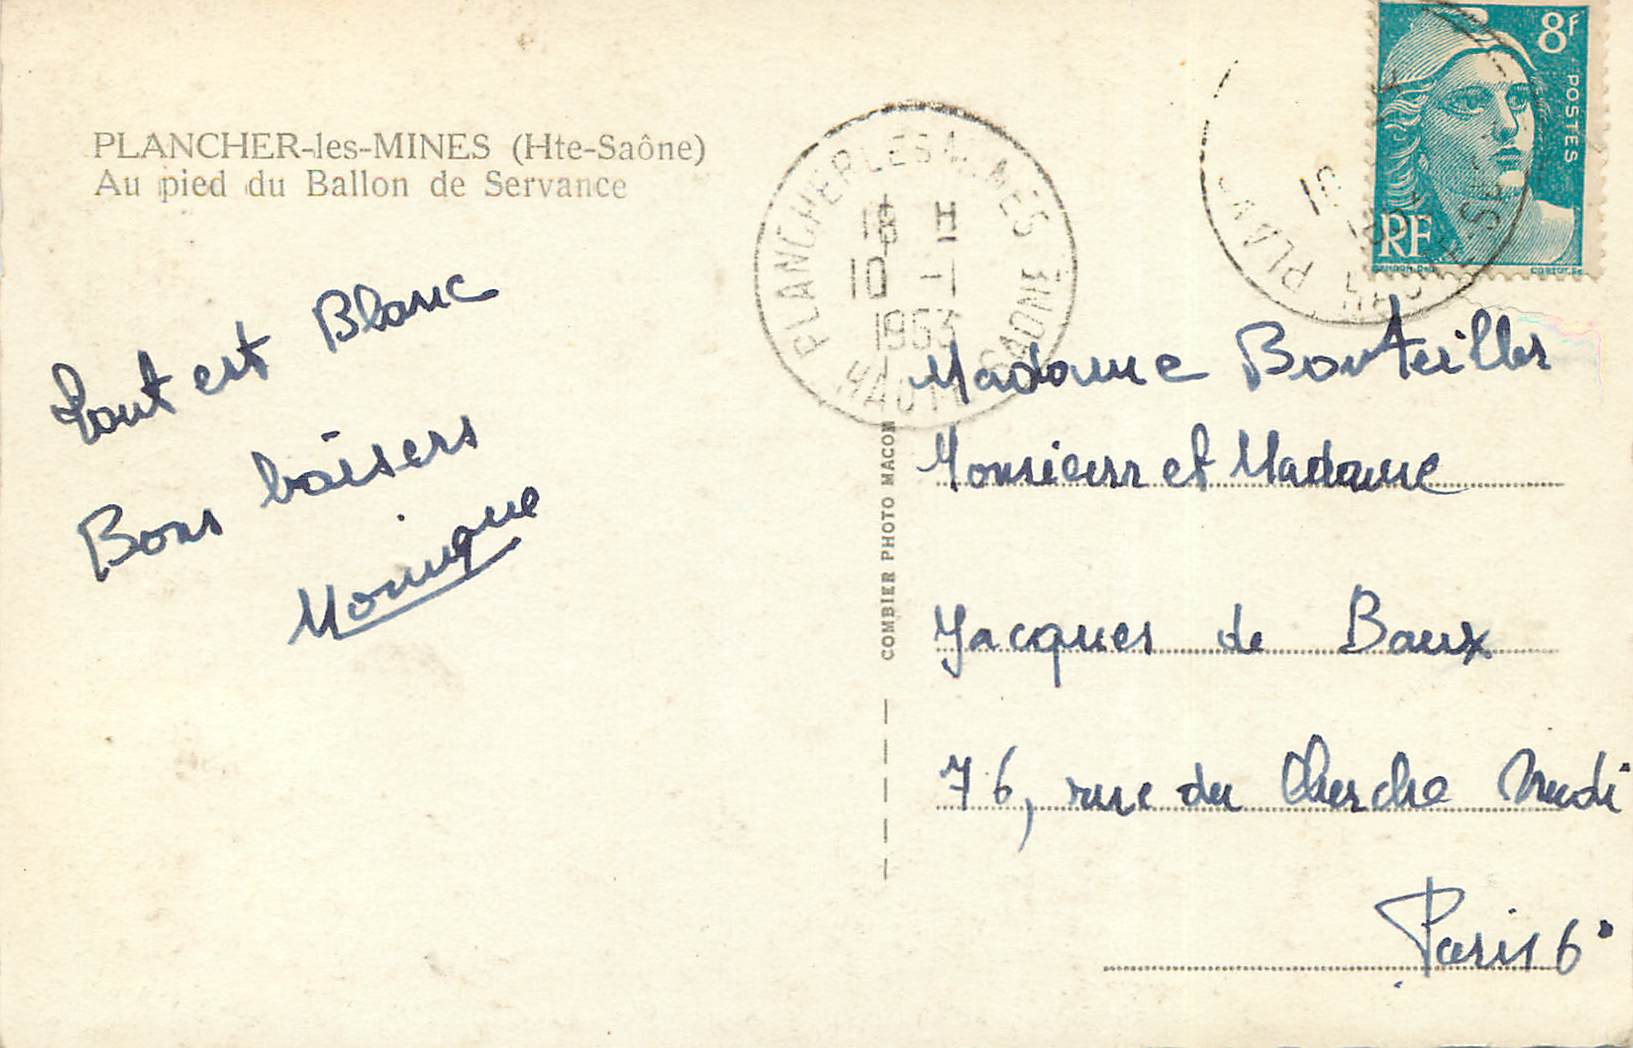 PLANCHER-les-MINES (Hte-Saône)
Au pied du Ballon de Servance
Tout est Blanc
Bons baisers
Monique
PLANCHER LES MINES
HAUTE SAONE
18 H
10 -1
1953
COMBIER PHOTO MACON
8f
POSTES
RF
Madame Bouteiller
Monsieur et Madame
Jacques de Baux
76, rue du Cherche Midi
Paris 6°